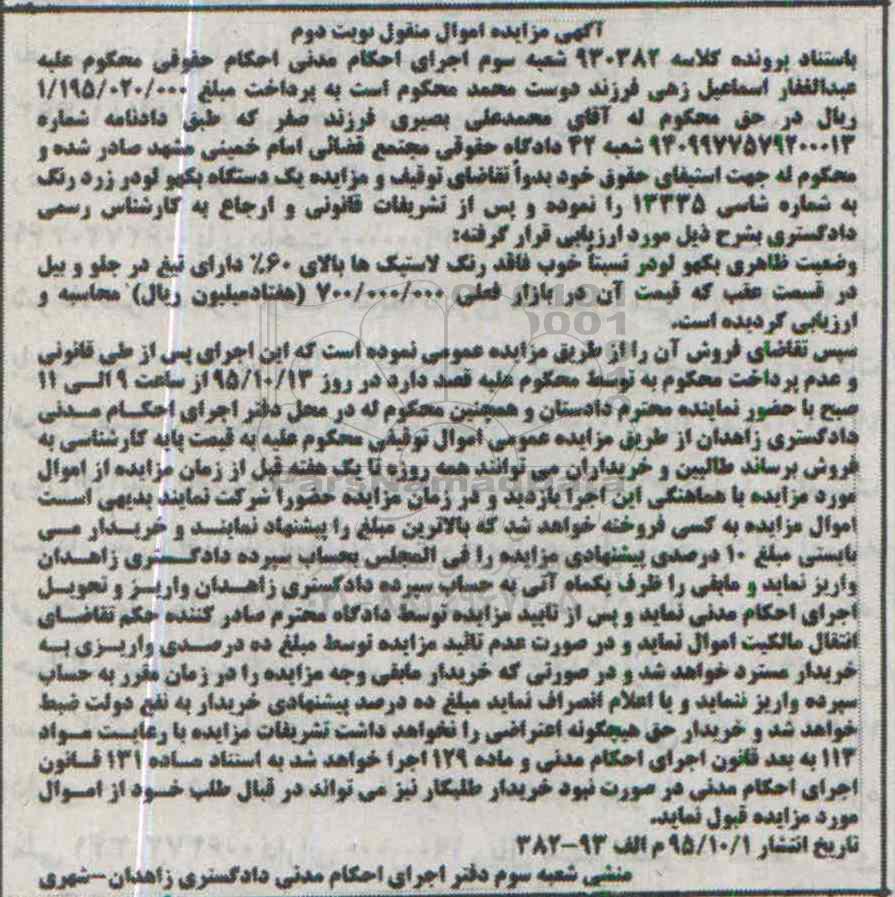 آگهی مزایده اموال منقول نوبت دوم
باستناد پرونده کلاسه ۹۳۰۳۸۲ شعبه سوم اجرای احکام مدنی احکام حقوقی محکوم علیه
عبدالغفار اسماعیل زهی فرزند دوست محمد محکوم است به پرداخت مبلغ ۱/۱۹۵/۰۲۰/۰۰۰
ریال در حق محکوم له آقای محمدعلی بصیری فرزند صفر که طبق دادنامه شماره
۹۴۰۹۹۷۷۵۷۹۲۰۰۰۱۳ شعبه ۴۲ دادگاه حقوقی مجتمع قضائی امام خمینی مشهد صادر شده و
محکوم له جهت استیفای حقوق خود بدواً تقاضای توقیف و مزایده یک دستگاه بکهو لودر زرد رنگ
به شماره شاسی ۱۳۳۳۵ را نموده و پس از تشریفات قانونی و ارجاع به کارشناس رسمی
دادگستری بشرح ذیل مورد ارزیابی قرار گرفته:
وضعیت ظاهری بکهو لودر نسبتاً خوب فاقد رنگ لاستیک ها بالای ۶۰٪ دارای تیغ در جلو و بیل
در قسمت عقب که قیمت آن در بازار فعلی ۷۰۰/۰۰۰/۰۰۰ (هفتادمیلیون ریال) محاسبه و
ارزیابی گردیده است.
سپس تقاضای فروش آن را از طریق مزایده عمومی نموده است که این اجرای پس از طی قانونی
و عدم پرداخت محکوم به توسط محکوم علیه قصد دارد در روز ۹۵/۱۰/۱۳ از ساعت ۹ الی ۱۱
صبح با حضور نماینده محترم دادستان و همچنین محکوم له در محل دفتر اجرای احکام مدنی
دادگستری زاهدان از طریق مزایده عمومی اموال توقیفی محکوم علیه به قیمت پایه کارشناسی به
فروش برساند طالبین و خریداران می توانند همه روزه تا یک هفته قبل از زمان مزایده از اموال
مورد مزایده با هماهنگی این اجرا بازدید و در زمان مزایده حضورا شرکت نمایند بدیهی است
اموال مزایده به کسی فروخته خواهد شد که بالاترین مبلغ را پیشنهاد نمایند و خریدار می
بایستی مبلغ ۱۰ درصدی پیشنهادی مزایده را فی المجلس بحساب سپرده دادگستری زاهدان
واریز نماید و مابقی را ظرف یکماه آتی به حساب سپرده دادگستری زاهدان واریز و تحویل
اجرای احکام مدنی نماید و پس از تایید مزایده توسط دادگاه محترم صادر کننده حکم تقاضای
انتقال مالکیت اموال نماید و در صورت عدم تائید مزایده توسط مبلغ ده درصدی واریزی به
خریدار مسترد خواهد شد و در صورتی که خریدار مابقی وجه مزایده را در زمان مقرر به حساب
سپرده واریز ننماید و یا اعلام انصراف نماید مبلغ ده درصد پیشنهادی خریدار به نفع دولت ضبط
خواهد شد و خریدار حق هیچگونه اعتراضی را نخواهد داشت تشریفات مزایده با رعایت مواد
۱۱۳ به بعد قانون اجرای احکام مدنی و ماده ۱۲۹ اجرا خواهد شد به استناد ماده ۱۳۱ قانون
اجرای احکام مدنی در صورت نبود خریدار طلبکار نیز می تواند در قبال طلب خود از اموال
مورد مزایده قبول نماید.
تاریخ انتشار ۹۵/۱۰/۱ م الف ۹۳-۳۸۲
منشی شعبه سوم دفتر اجرای احکام مدنی دادگستری زاهدان-شهری
ParsNamadData